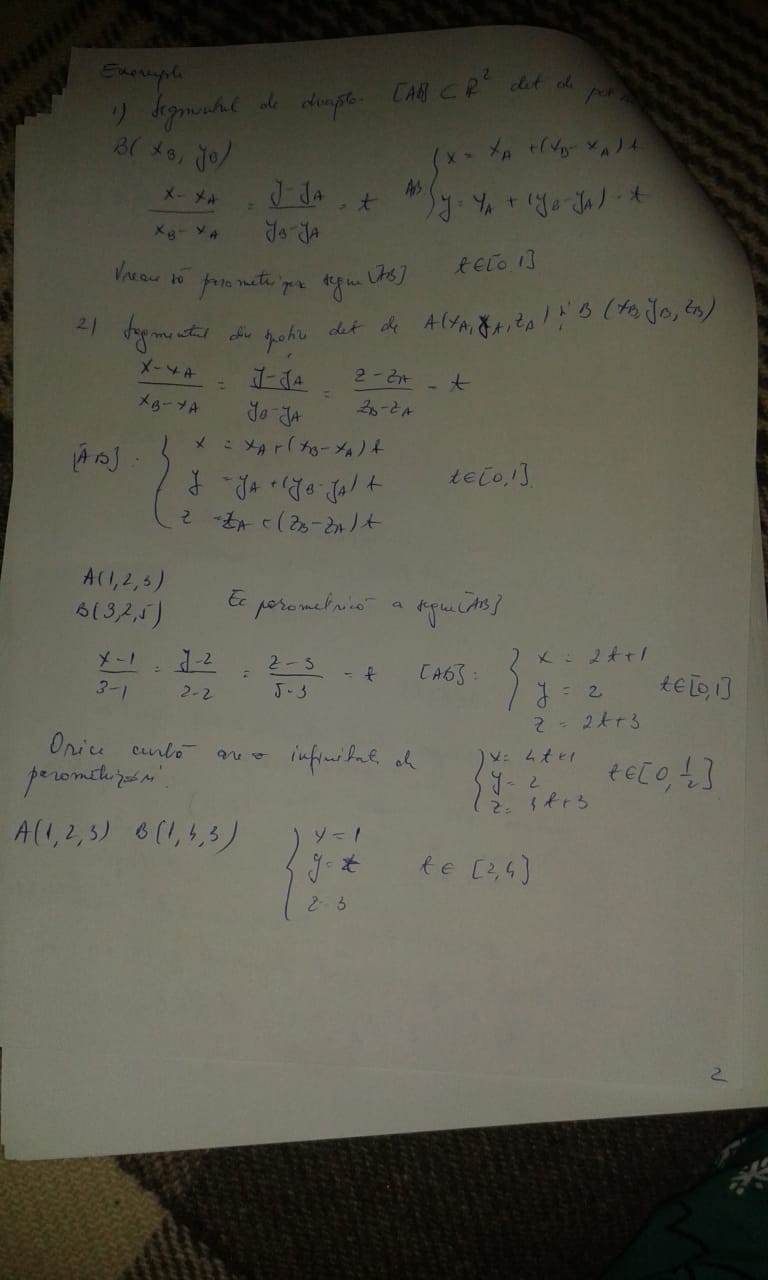 Exemple
1) Segmentul de dreapta [AB] ⊂ R² det de
B(x_B, y_B)
(x-x_A)/(x_B-x_A) = (y-y_A)/(y_B-y_A) = t   AB { x = x_A + (x_B-x_A)t
y = y_A + (y_B-y_A)·t
Vreau să parametrizez segm [AB]   t∈[0,1]
2) Segmentul din spațiu det de A(x_A, y_A, z_A) și B(x_B, y_B, z_B)
(x-x_A)/(x_B-x_A) = (y-y_A)/(y_B-y_A) = (z-z_A)/(z_B-z_A) = t
[AB]: { x = x_A+(x_B-x_A)t
y = y_A+(y_B-y_A)t   t∈[0,1].
z = z_A+(z_B-z_A)t
A(1,2,3)
B(3,2,5)   Ec parametrică a segm [AB]
(x-1)/(3-1) = (y-2)/(2-2) = (z-3)/(5-3) = t   [AB]: { x = 2t+1
y = 2   t∈[0,1]
z = 2t+3
Orice curbă are o infinitate de
parametrizări.
{ x = 4t+1
y = 2   t∈[0, 1/2]
z = 4t+3
A(1,2,3) B(1,4,3)   { x = 1
y = t   t ∈ [2,4]
z = 3
2